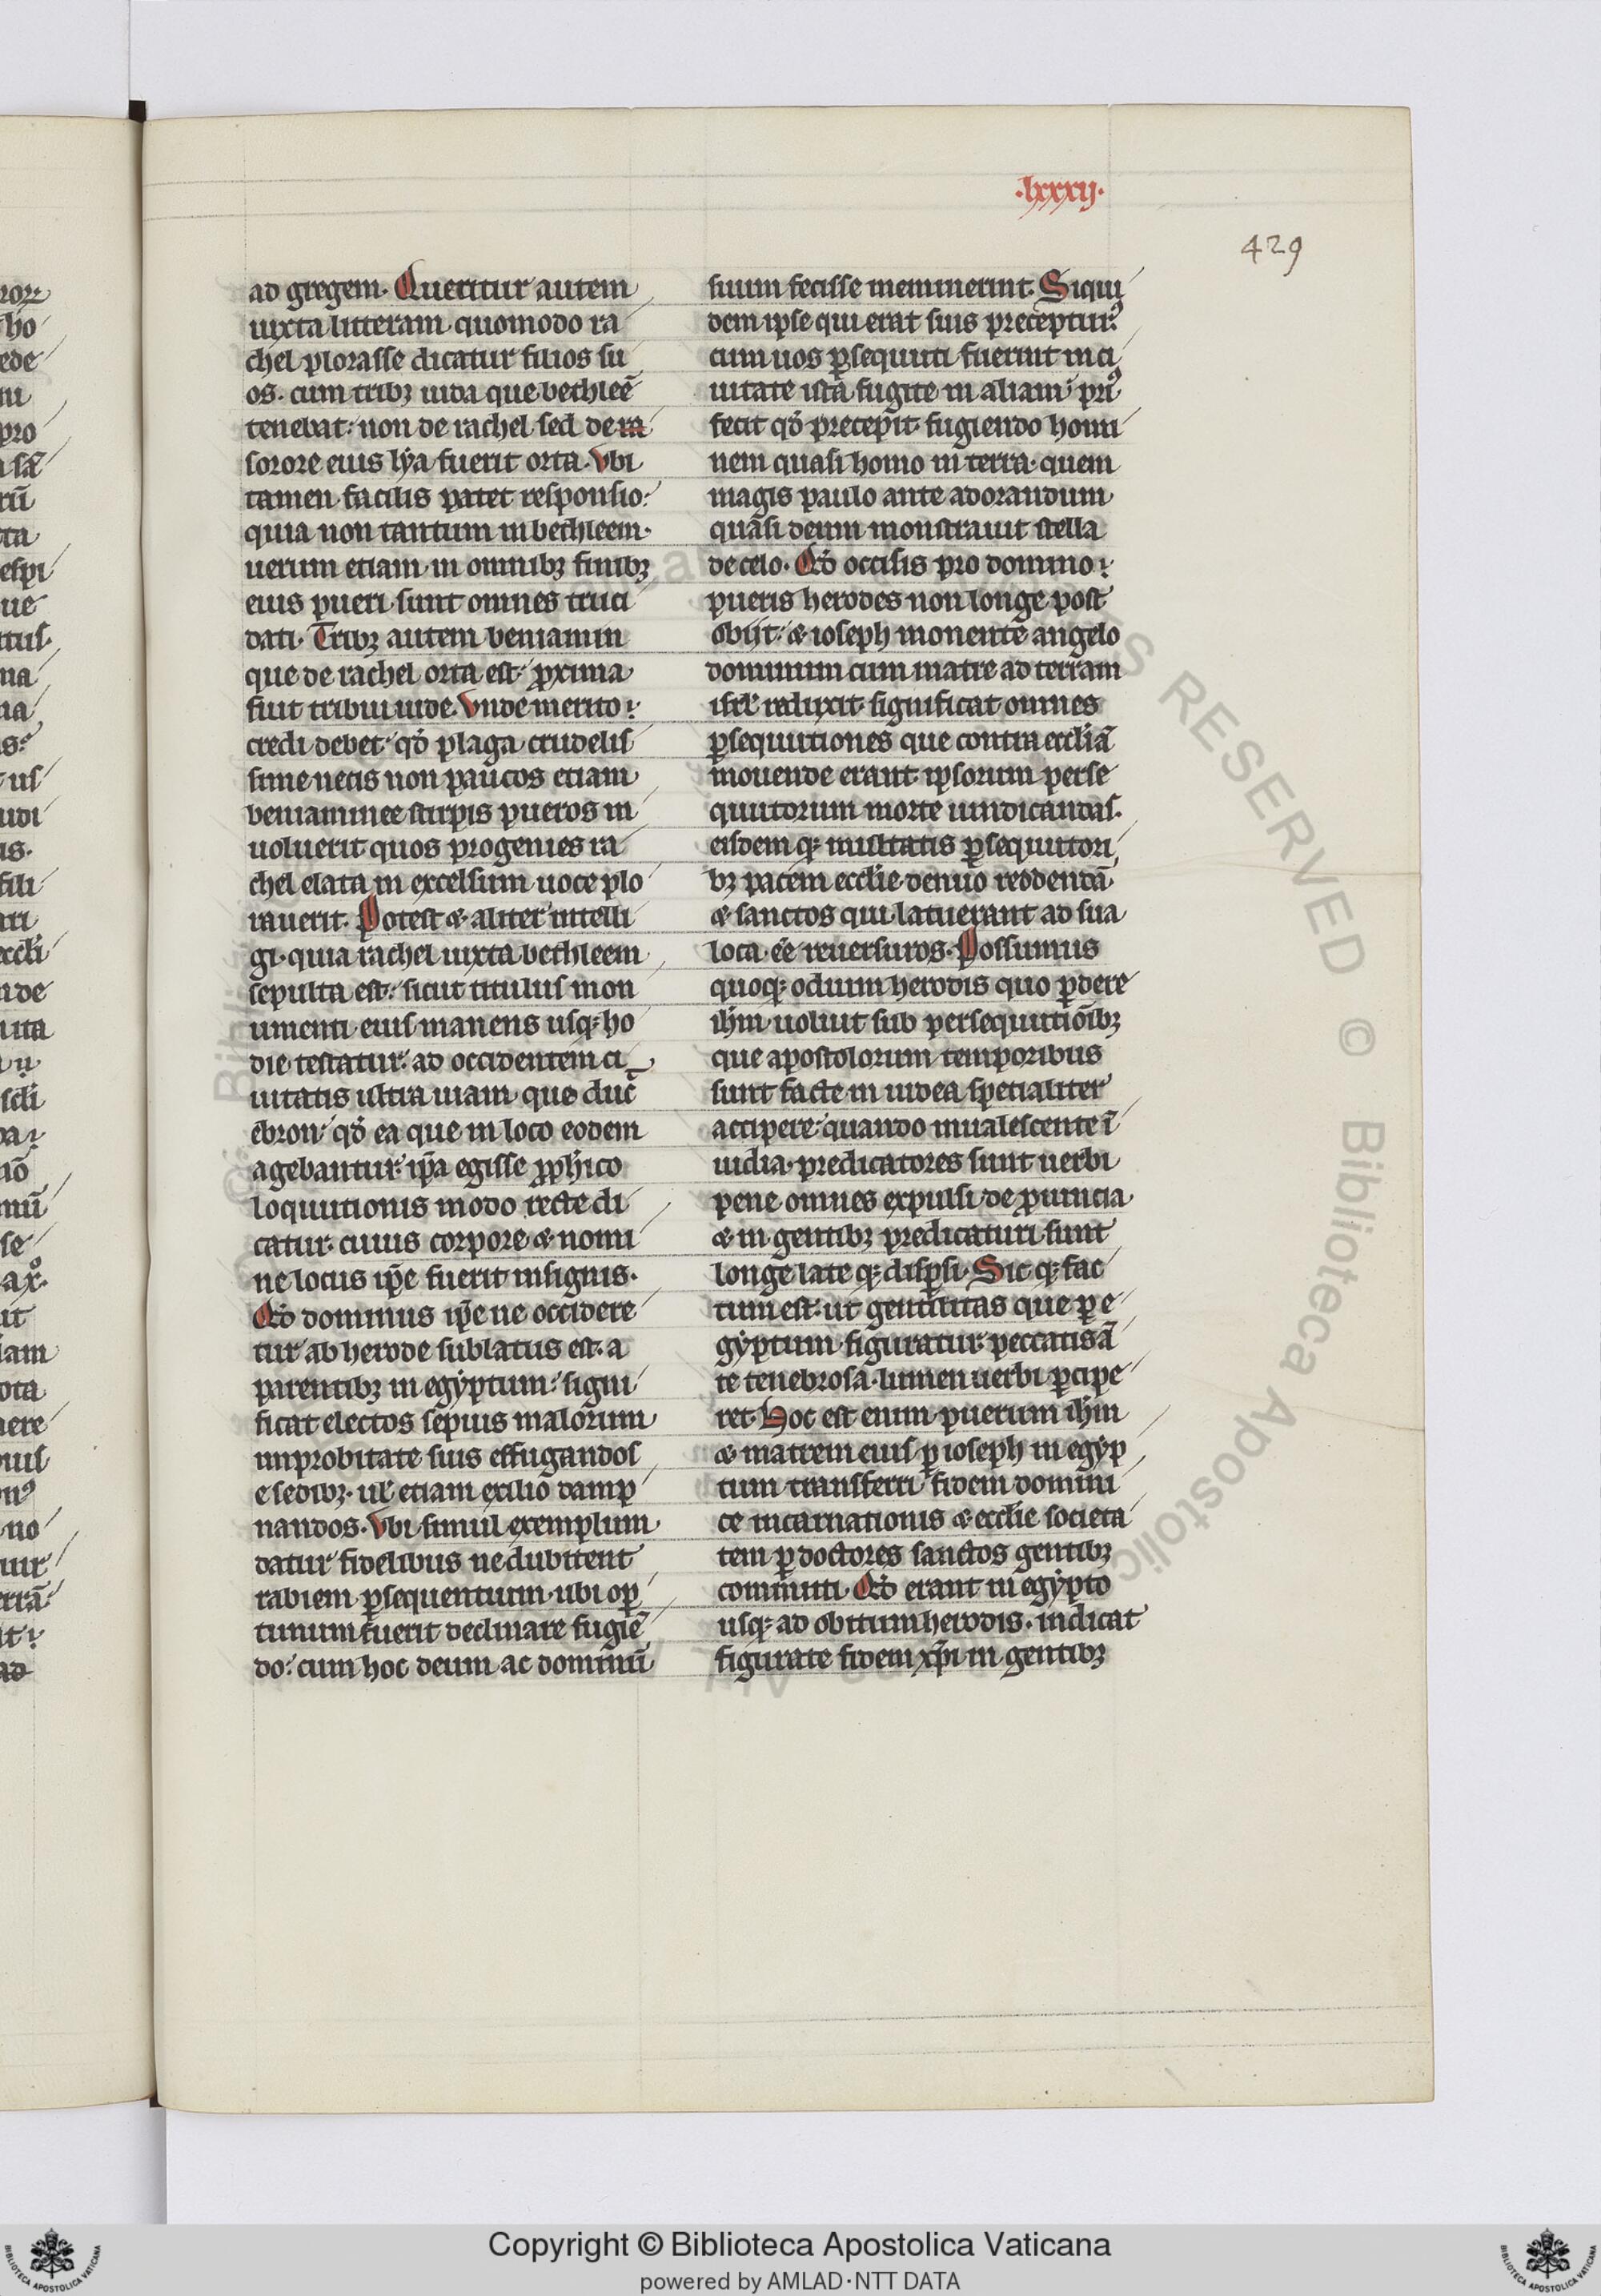 ·lxxxij·
429
ad gregem. Queritur autem
iuxta litteram quomodo ra
chel plorasse dicatur filios su
os. cum tribꝫ iuda que bethleē
tenebat: non de rachel sed de ra
sorore eius lya fuerit orta. Vbi
tamen facilis patet responsio:
quia non tantum in bethleem.
uerum etiam in omnibꝫ finibꝫ
eius pueri sunt omnes truci
dati. Tribꝫ autem beniamin
que de rachel orta est: ꝓxima
fuit tribui iude. Vnde merito:
credi debet qđ plaga crudelis
sime necis non paucos etiam
beniaminee stirpis pueros in
uoluerit quos progenies ra
chel elata in excelsum uoce plo
rauerit. Potest & aliter intelli
gi. quia rachel iuxta bethleem
sepulta est: sicut titulus mon
umenti eius manens usqꝫ ho
die testatur: ad occidentem ci
uitatis ultra uiam que duc̄
ebron: qđ ea que in loco eodem
agebantur: ip̄a egisse ꝓph̄ico
loquutionis modo recte di
catur. cuius corpore & nomi
ne locus ip̄e fuerit insignis.
Qđ dominus ip̄e ne occidere
tur ab herode sublatus est a
parentibꝫ in egyptum: signi
ficat electos sepius malorum
improbitate suis effugandos
e sedibꝫ. ul̄ etiam exilio damp
nandos. Vbi simul exemplum
datur fidelibus ne dubitent
rabiem ꝑsequentium ubi op̄
tunum fuerit declinare fugiē
do: cum hoc deum ac dominū
suum fecisse meminerint. Siqui
dem ipse qui erat suis preceptur⁹
cum uos ꝑsequuti fuerint in ci
uitate ista fugite in aliam: pri⁹
fecit qđ precepit fugiendo homi
nem quasi homo in terra. quem
magis paulo ante adorandum
quasi deum monstrauit stella
de celo. Qđ occisis pro domino:
pueris herodes non longe post
obijt: & ioseph monente angelo
dominum cum matre ad terram
isrl̄ reduxit significat omnes
ꝑsequutiones que contra eccl̄iā
mouende erant ipsorum perse
quutorum morte uindicandas.
eisdemqꝫ multatis ꝑsequutori
bꝫ pacem eccl̄ie denuo reddendā
& sanctos qui latuerant ad sua
loca. eē reuersuros. Possumus
quoqꝫ odium herodis quo ꝑdere
ih̄m uoluit sub persequutiōibꝫ
que apostolorum temporibus
sunt facte in iudea specialiter
accipere: quando inualescente ī
uidia. predicatores sunt uerbi
pene omnes expulsi de ꝓuincia
& in gentibꝫ predicaturi sunt
longe lateqꝫ disꝑsi. Sicqꝫ fac
tum est. ut gentilitas que ꝑ e
gyptum figuratur. peccatis ā
te tenebrosa. lumen uerbi ꝑcipe
ret. Hoc est enim puerum ih̄m
& matrem eius ꝑ ioseph in egyp
tum transferri: fidem domini
ce incarnationis & eccl̄ie societa
tem ꝑ doctores sanctos gentibꝫ
committi. Qđ erant in egypto
usqꝫ ad obitum herodis. indicat
figurate fidem xp̄i in gentibꝫ
Copyright © Biblioteca Apostolica Vaticana
powered by AMLAD·NTT DATA